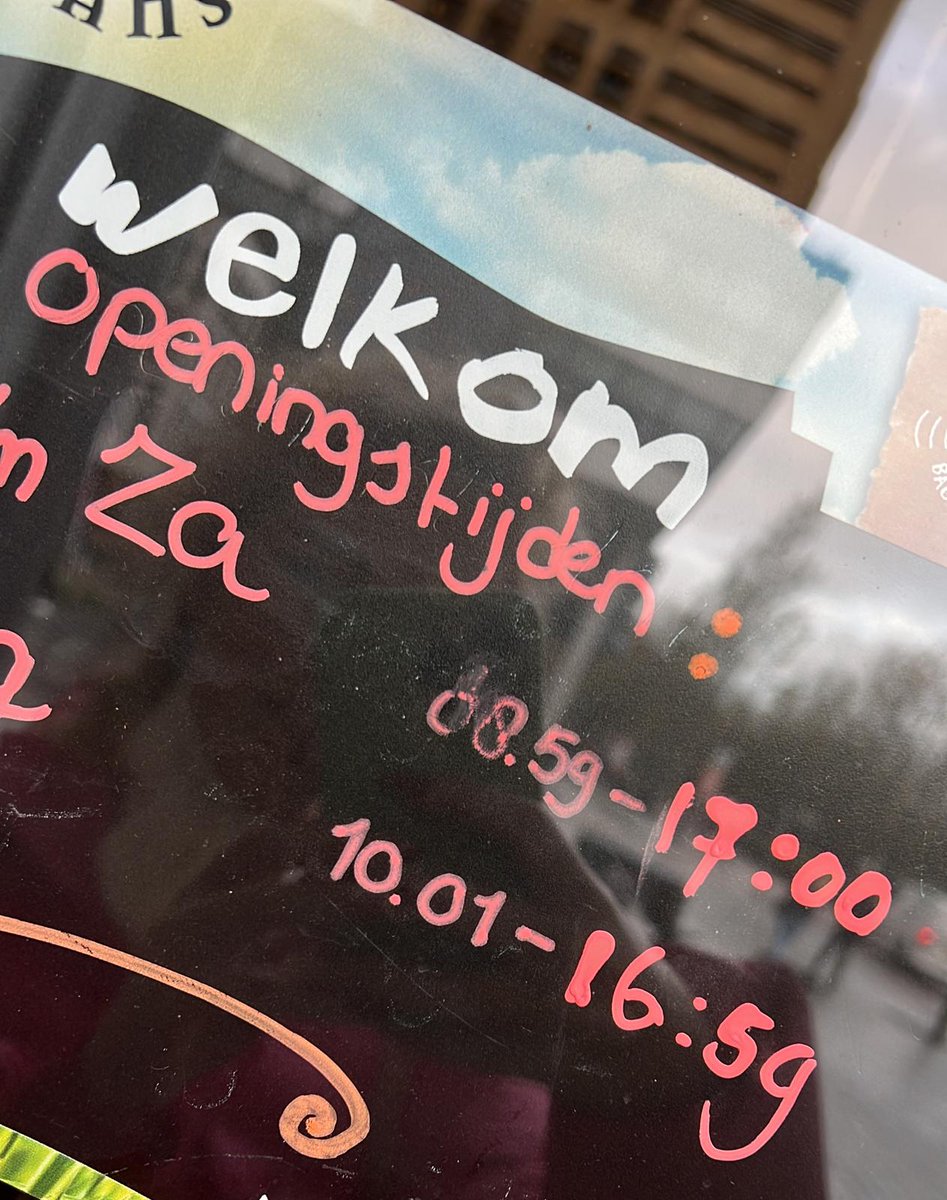 AHS
welkom
openingstijden :
Za
08.59 - 17:00
10.01 - 16:59